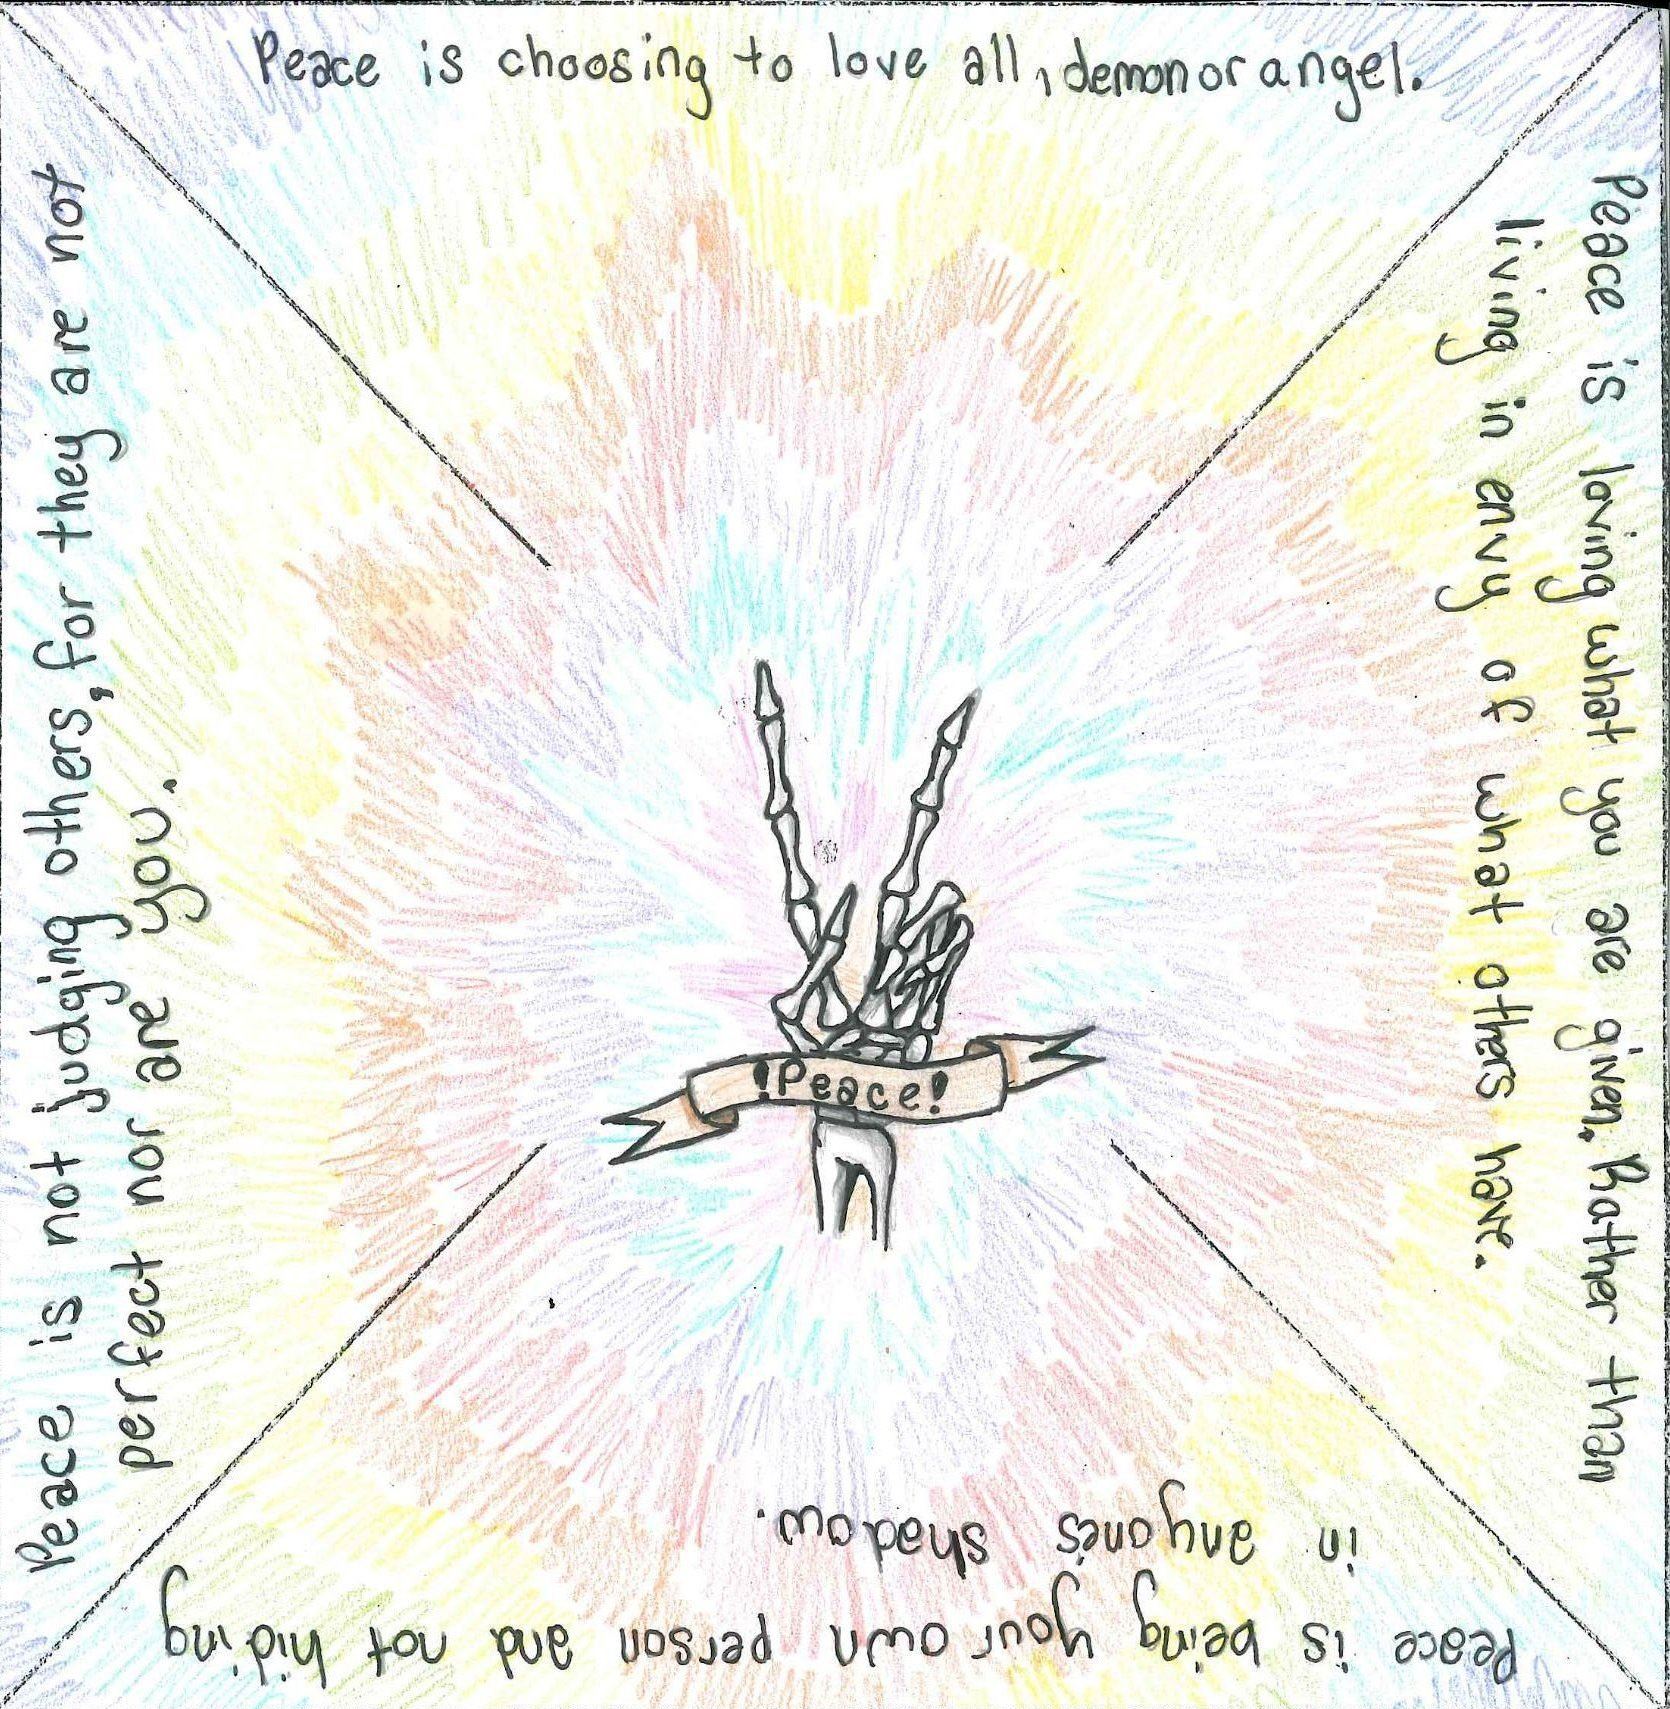 Peace is choosing to love all, demon or angel.
Peace is loving what you are given. Rather than
living in envy of what others have.
Peace is being your own person and not hiding
in anyone's shadow.
Peace is not judging others, for they are not
perfect nor are you.
!Peace!